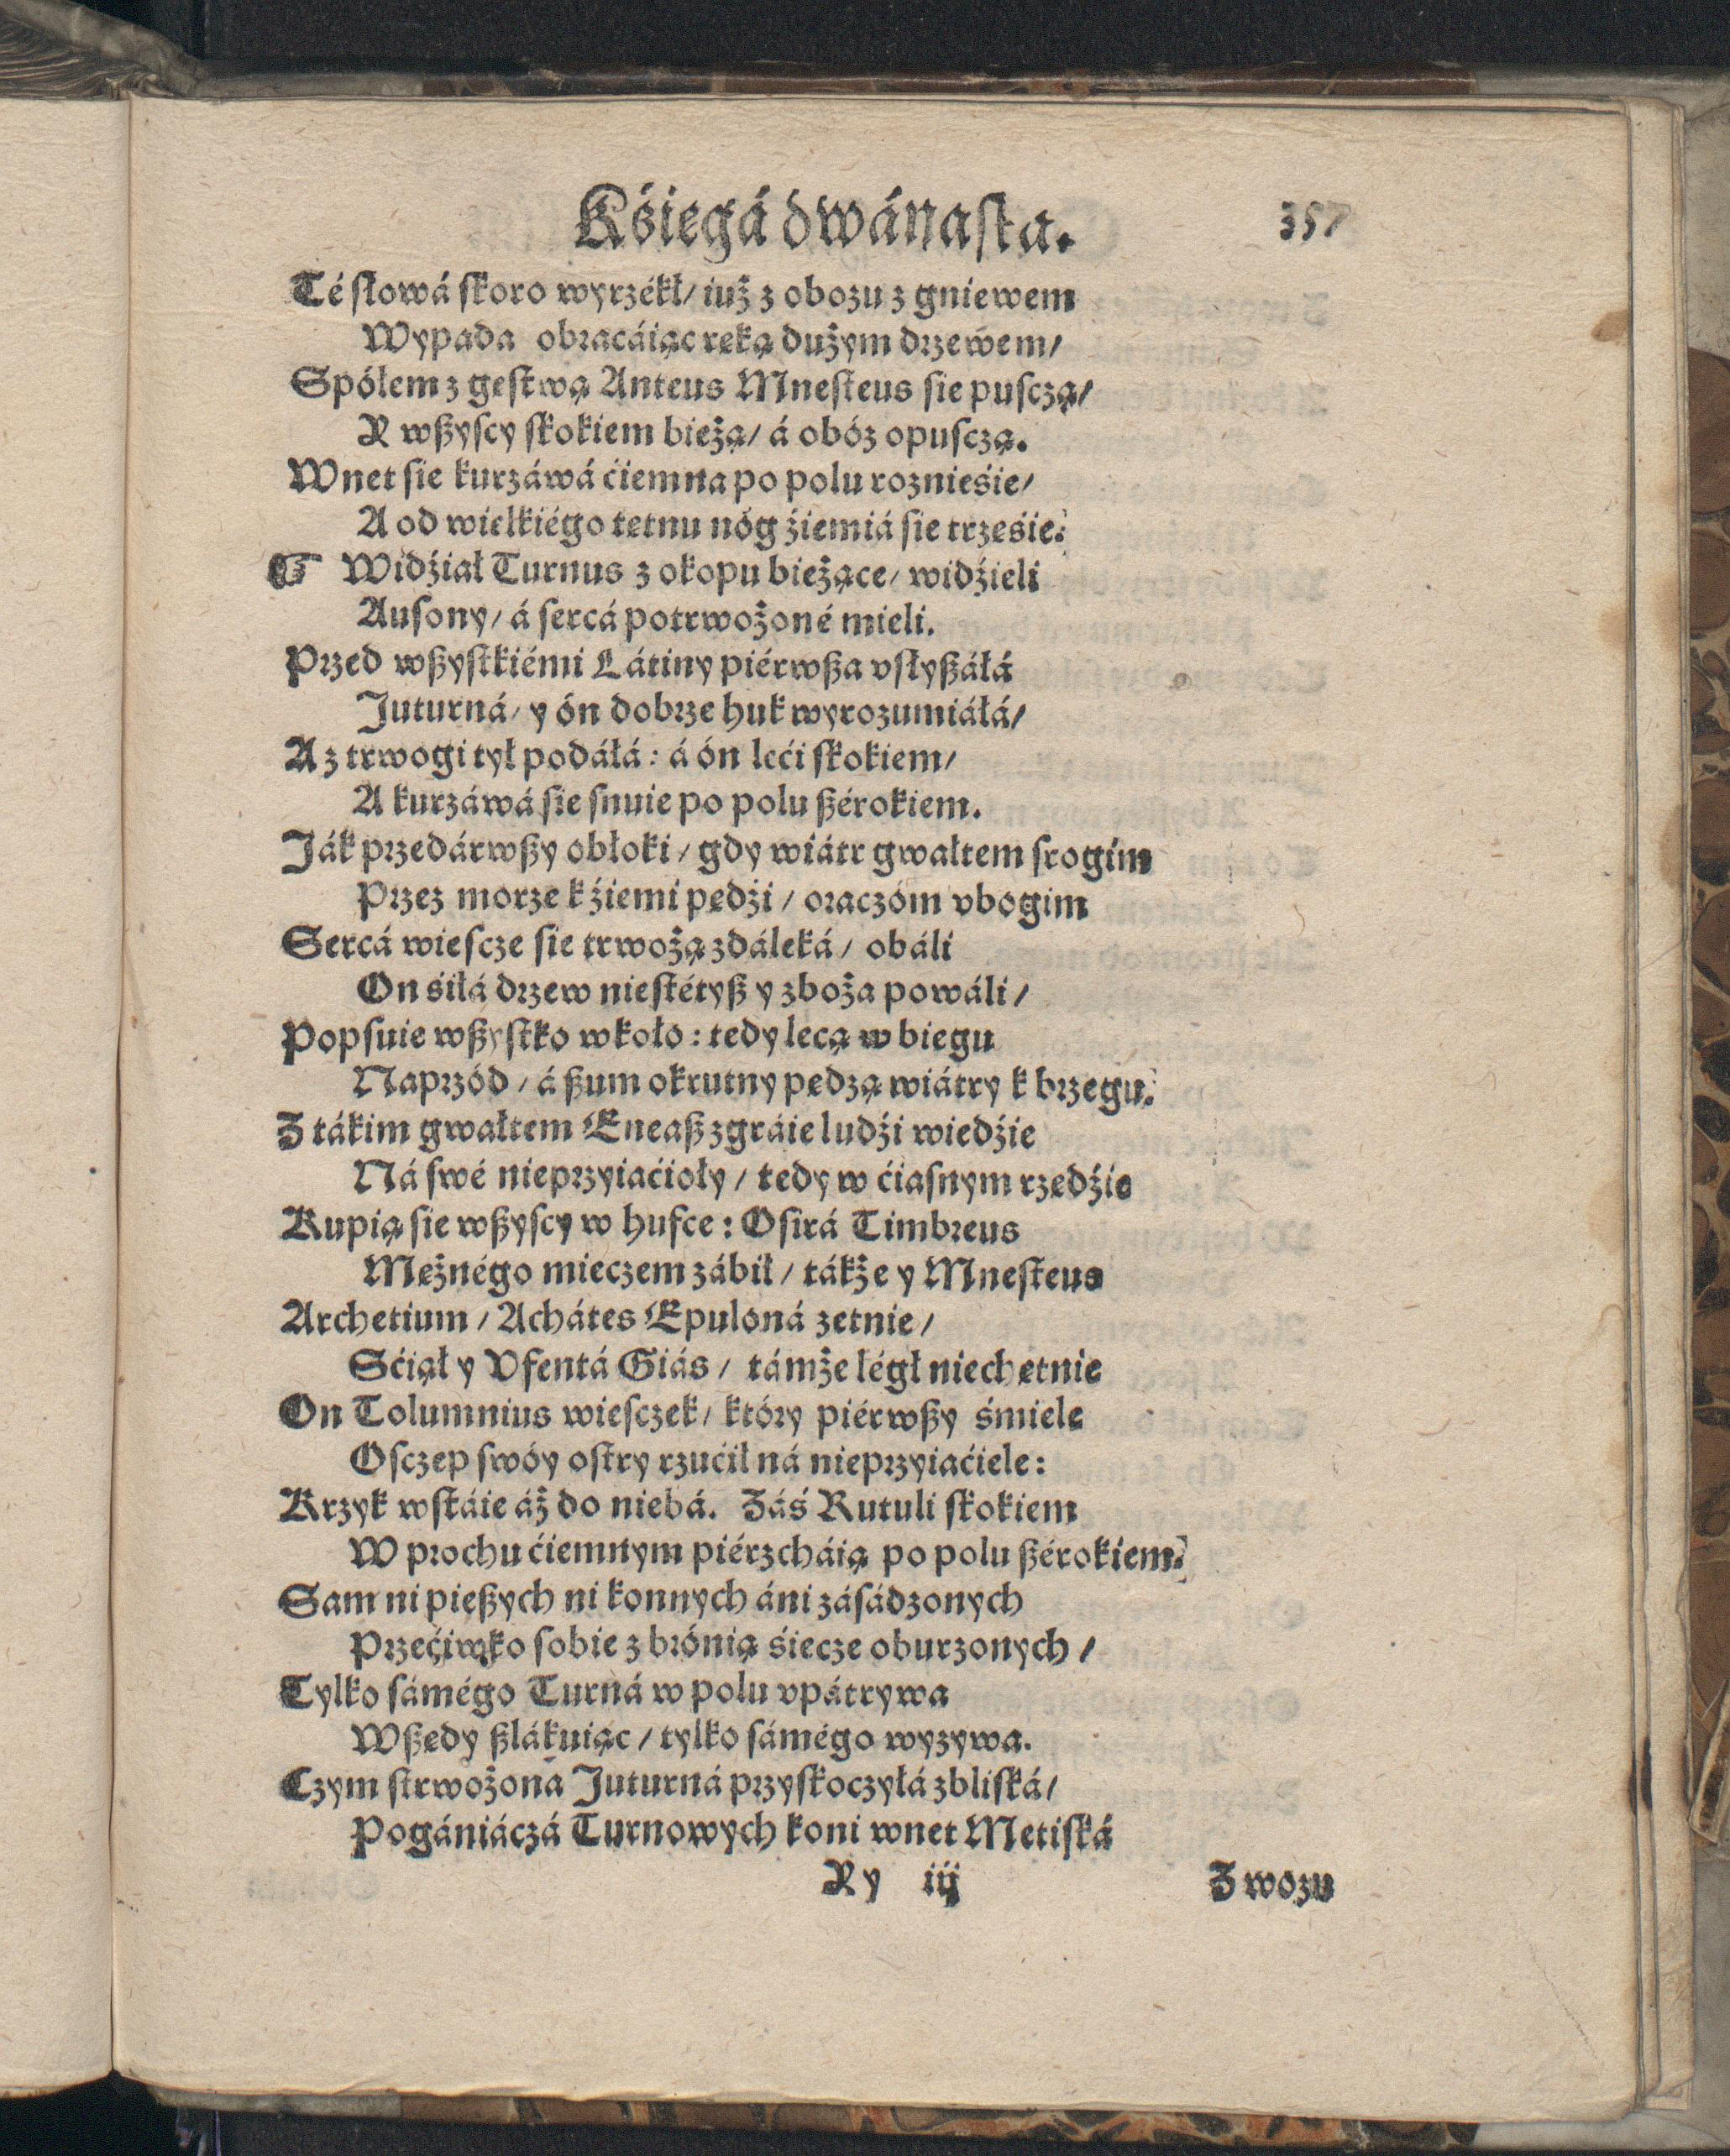 Kśięgá dwánasta.
357
Té słowá skoro wyrzékł/ iuż z obozu z gniewem
Wypada obracáiąc ręką dużym drzewem/
Społem z gęstwą Anteus Mnesteus się pusczą/
A wßyscy skokiem bieżą/ á obóz opusczą.
Wnet się kurzáwá ćiemna po polu roznieśie/
A od wielkiégo tętnu nóg źiemiá się trzęśie.
☞ Widźiał Turnus z okopu bieżące/ widźieli
Ausony/ á sercá potrwożoné mieli.
Przed wßystkiémi Látiny piérwßa vsłyßáłá
Juturná/ y ón dobrze huk wyrozumiáłá/
A z trwogi tył podáłá: á ón leći skokiem/
A kurzáwá się snuie po polu ßérokiem.
Ják przedárwßy obłoki/ gdy wiátr gwałtem srogim
Przez morze k źiemi pędźi/ oraczóm vbogim
Sercá wiescze się trwożą zdáleká/ obáli
On śiłá drzew niestétyß y zboża powáli/
Popsuie wßystko wkoło: tedy lecą w biegu
Naprzód/ á ßum okrutny pędzą wiátry k brzegu.
Z tákim gwałtem Eneaß zgráię ludźi wiedźie
Ná swé nieprzyiaćioły/ tedy w ćiasnym rzędźie
Kupią się wßyscy w hufce: Osirá Timbreus
Mężnégo mieczem zábił/ tákże y Mnesteus
Archetium/ Achátes Epuloná zetnie/
Sćiął y Vfentá Giás/ támże légł niechętnie
On Tolumnius wiesczek/ który piérwßy śmiele
Osczep swóy ostry rzućił ná nieprzyiaćiele:
Krzyk wstáie áż do niebá. Záś Rutuli skokiem
W prochu ćiemnym piérzcháią po polu ßérokiem.
Sam ni pießych ni konnych áni zásádzonych
Przećiwko sobie z brónią śiecze oburzonych/
Tylko sámégo Turná w polu vpátrywa
Wßędy ßlákuiąc/ tylko sámégo wyzywa.
Czym strwożona Juturná przyskoczyłá zbliská/
Pogániáczá Turnowych koni wnet Metiská
Yy iij
Z wozu